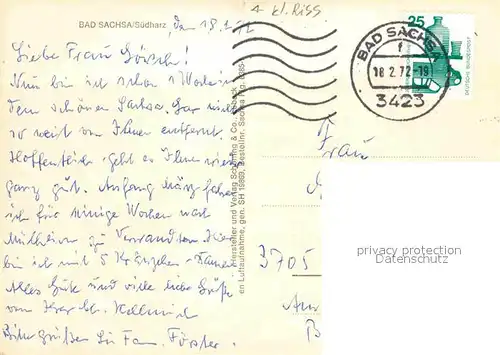 BAD SACHSA/Südharz den 18.2.72
4- kl. Riss
Liebe Frau
Nun bin ich schon 1 Woche in
dem schönen Sachsa. Gar nicht
so weit von Ihnen entfernt.
Hoffentlich geht es Ihnen wieder
ganz gut. Anfang März fahre
ich für einige Wochen nach
Mülheim zu Verwandten. Hier
bin ich mit 5
Alles Gute und viele liebe Grüße
von Ihrer
Bitte grüßen Sie Fam. Förster.
Hersteller und Verlag Schöning & Co., Lübeck
en Luftaufnahme, gen. SH 19869, Bestellnr. Sachsa
25
DEUTSCHE BUNDESPOST
BAD SACHSA
f
18.2.72-19
3423
Frau
3705
privacy protection
Datenschutz